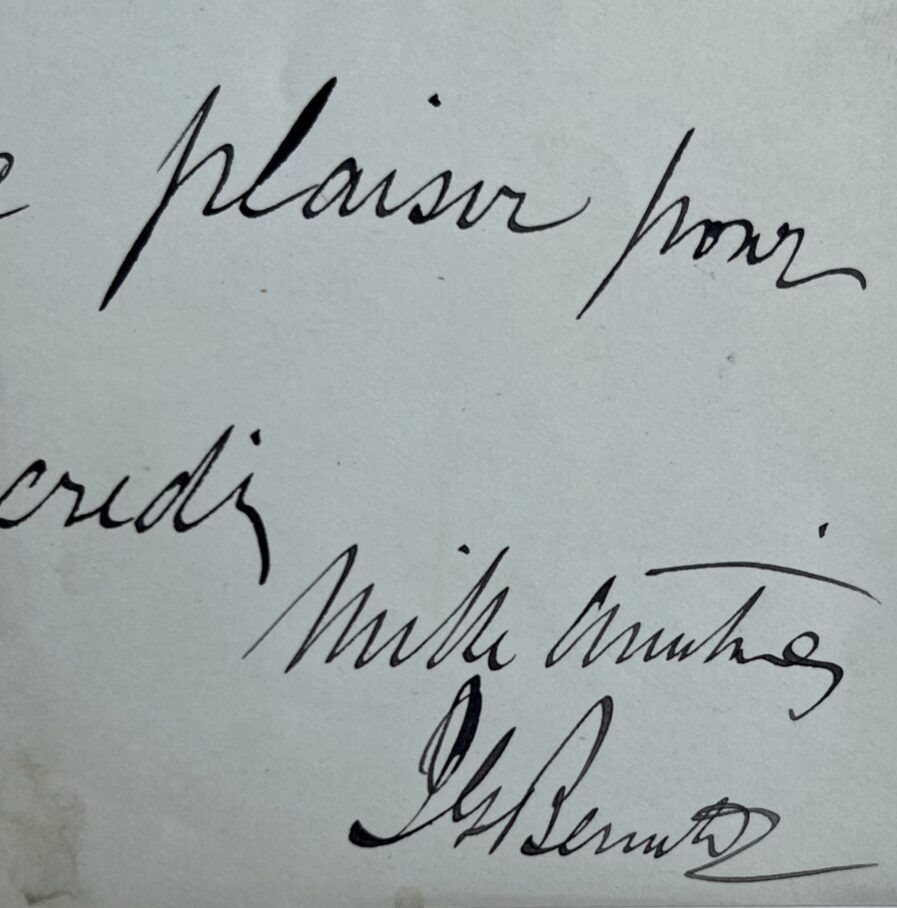 e plaisir pour
credi,
Mille amitiés